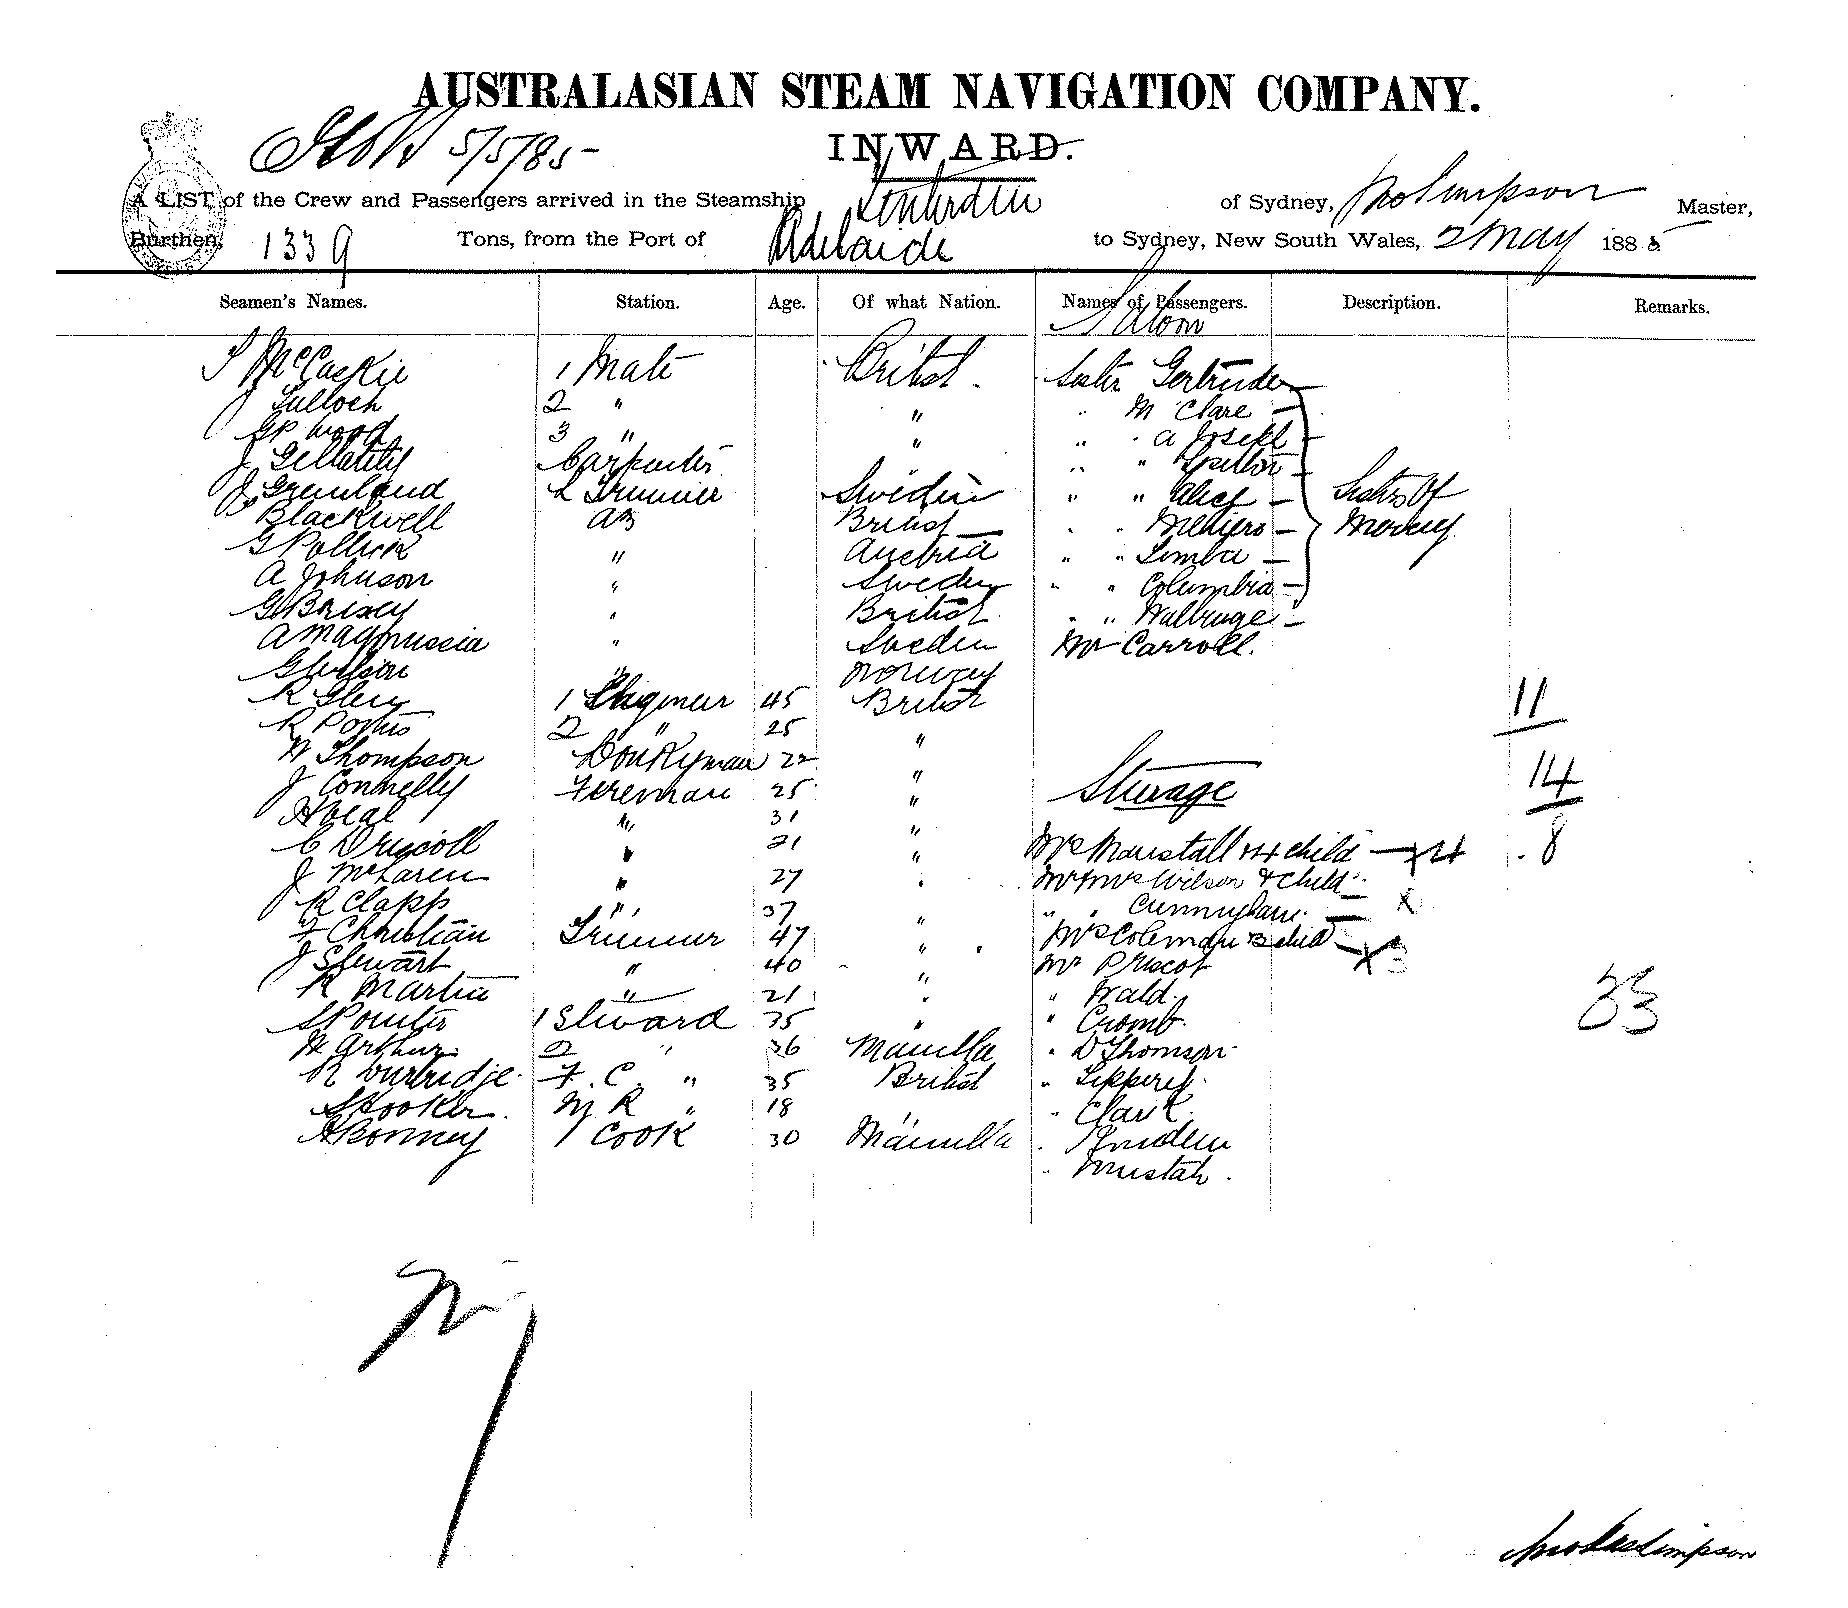 AUSTRALASIAN STEAM NAVIGATION COMPANY.
INWARD.
5/5/85
A LIST of the Crew and Passengers arrived in the Steamship of Sydney, Jno Simpson Master,
Burthen, 1339 Tons, from the Port of Adelaide to Sydney, New South Wales, 2 May 1885
Seamen's Names. Station. Age. Of what Nation. Names of Passengers. Description. Remarks.
Saloon
McCaskie 1 Mate British Sister Gertrude
J Tulloch 2 " " " M Clare
GP Wood 3 " " " " A Joseph
J Gellatly Carpenter " "
J Grenlund L Trimmer Sweden " " Alicy Sisters Of
Blackwell AB British " " Mercy
G Pollick " Austria " "
A Johnson " Sweden " " Columbia
G Brixey " British " " Walburge
A Magnussia " Sweden Mr Carroll.
G Wilson " Norway
R Glen 1 Engineer 45 British 11
R Portus 2 " 25 "
W Thompson Donkyman 22 " 14
J Connelly Fireman 25 " Sterage
H Veal " 31 "
C Driscoll " 21 " Mrs Marstall + 4 child 4 8
J McLaren " 27 " Mr & Mrs Wilson & Child
R Clapp " 37 " " "
F Christian Trimmer 47 " Mrs Coleman 3 child 3
J Stewart " 40 " Mr Driscot
R Martin " 21 " " Wald 33
S Pointer 1 Steward 35 " " Cromb.
W Arthur 2 " 36 Manilla " D Thomson
R Durridje F. C. " 35 British "
S Hooker M R " 18 " " Clark
A Bonney 1 Cook 30 Manilla "
" Mustah